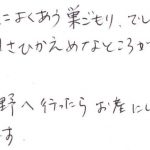 によくあう巣ごもり、でし
さひかえめなところが
野へ行ったらお産にし
す